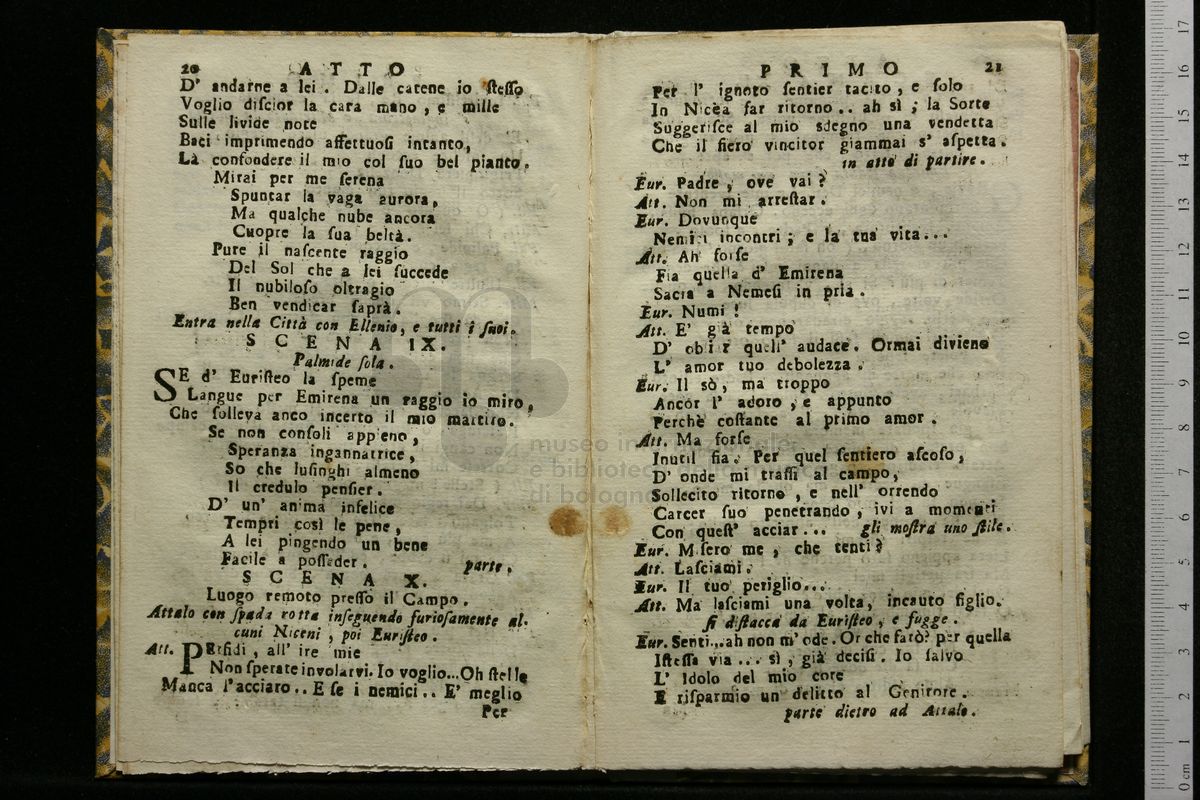 20 ATTO
D' andarne a lei. Dalle catene io ſteſſo
Voglio diſcior la cara mano, e mille
Sulle livide note
Baci imprimendo affettuoſi intanto,
Là confondere il mio col ſuo bel pianto.
Mirai per me ſerena
Spuntar la vaga aurora,
Ma qualche nube ancora
Cuopre la ſua beltà.
Pure il naſcente raggio
Del Sol che a lei ſuccede
Il nubiloſo oltragio
Ben vendicar ſaprà.
Entra nella Città con Ellenio, e tutti i ſuoi.
SCENA IX.
Palmide ſola.
SE d' Euriſteo la ſpeme
Langue per Emirena un raggio io miro,
Che ſolleva anco incerto il mio martiro.
Se non conſoli appieno,
Speranza ingannatrice,
So che luſinghi almeno
Il credulo penſier.
D' un' anima infelice
Tempri così le pene,
A lei pingendo un bene
Facile a poſſeder. parte.
SCENA X.
Luogo remoto preſſo il Campo.
Attalo con ſpada rotta inſeguendo furioſamente al-
cuni Niceni, poi Euriſteo.
Att. PErfidi, all' ire mie
Non ſperate involarvi. Io voglio...Oh ſtelle
Manca l'acciaro.. E ſe i nemici.. E' meglio
Per
PRIMO 21
Per l' ignoto ſentier tacito, e ſolo
In Nicèa far ritorno.. ah sì; la Sorte
Suggeriſce al mio sdegno una vendetta
Che il fiero vincitor giammai s' aſpetta.
in atto di partire.
Eur. Padre, ove vai?
Att. Non mi arreſtar.
Eur. Dovunque
Nemici incontri; e la tua vita...
Att. Ah forſe
Fia quella d' Emirena
Sacra a Nemeſi in pria.
Eur. Numi!
Att. E' già tempo
D' obliar quell' audace. Ormai diviene
L' amor tuo debolezza.
Eur. Il sò, ma troppo
Ancor l' adoro, e appunto
Perchè coſtante al primo amor.
Att. Ma forſe
Inutil fia. Per quel ſentiero aſcoſo,
D' onde mi traſſi al campo,
Sollecito ritorno, e nell' orrendo
Carcer ſuo penetrando, ivi a momenti
Con queſt' acciar... gli moſtra uno ſtile.
Eur. Miſero me, che tenti?
Att. Laſciami.
Eur. Il tuo periglio...
Att. Ma laſciami una volta, incauto figlio.
ſi diſtacca da Euriſteo, e fugge.
Eur. Senti...ah non m' ode. Or che farò? per quella
Iſteſſa via... sì, già deciſi. Io ſalvo
L' Idolo del mio core
E riſparmio un delitto al Genitore.
parte dietro ad Attalo.
museo internazionale
e biblioteca della musica
di bologna
0 cm 1 2 3 4 5 6 7 8 9 10 11 12 13 14 15 16 17